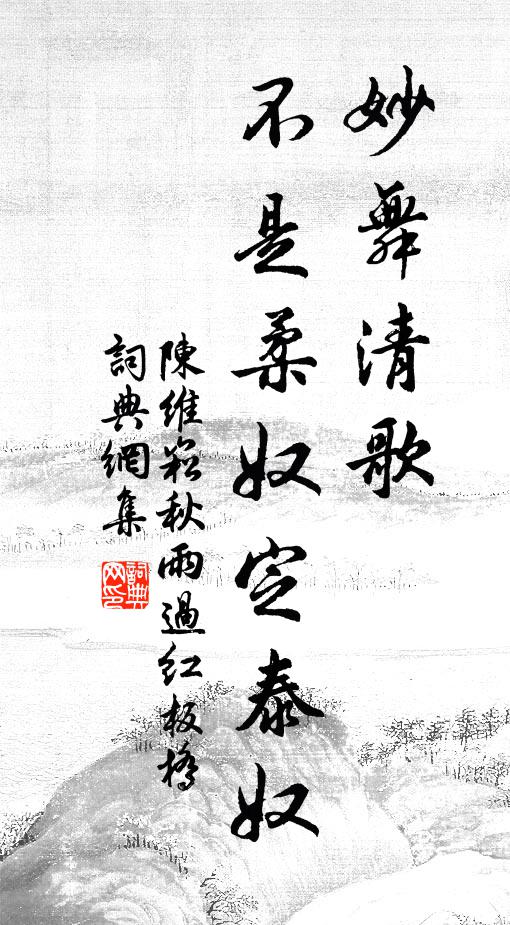 妙舞清歌
不是柔奴定泰奴
陳維崧秋雨過紅板橋
詞典網集
詞典
网印